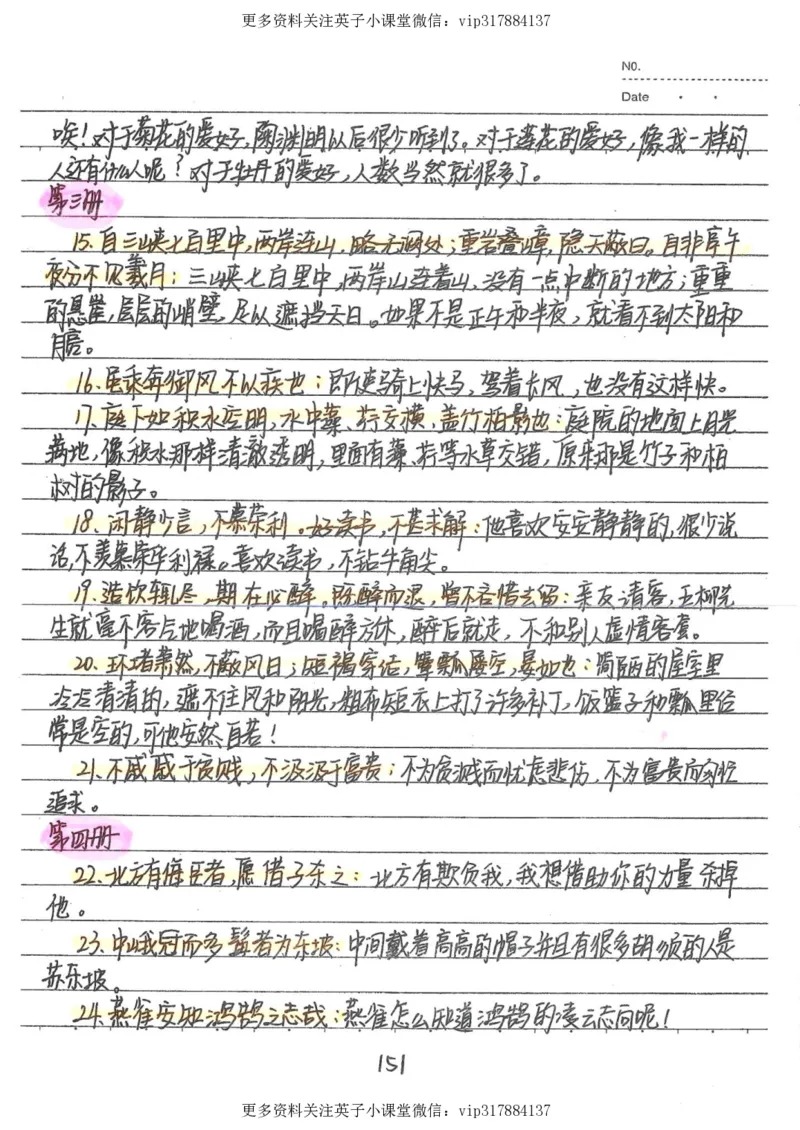 更多资料关注英子小课堂微信：vip317884137
N0.
Date
唉！对于菊花的爱好，陶渊明以后很少听到了。对于莲花的爱好，像我一样的
人还有什么人呢？对于牡丹的爱好，人数当然就很多了。
第三册
15.自三峡七百里中，两岸连山，略无阙处；重岩叠嶂，隐天蔽日。自非亭午
夜分不见曦月：三峡七百里中，两岸山连着山，没有一点中断的地方；重重
的悬崖，层层的峭壁，足以遮挡天日。如果不是正午和半夜，就看不到太阳和
月亮。
16.虽乘奔御风不以疾也：即使骑上快马，驾着长风，也没有这样快。
17.庭下如积水空明，水中藻、荇交横，盖竹柏影也：庭院的地面上月光
满地，像积水那样清澈透明，里面有藻、荇等水草交错，原来那是竹子和柏
树的影子。
18.闲静少言，不慕荣利。好读书，不甚求解：他喜欢安安静静的，很少说
话，不羡慕荣华利禄。喜欢读书，不钻牛角尖。
19.造饮辄尽，期在必醉。既醉而退，曾不吝惜去留：亲友请客，五柳先
生就毫不客气地喝酒，而且喝醉方休，醉后就走，不和别人虚情客套。
20.环堵萧然，不蔽风日；短褐穿结，箪瓢屡空，晏如也：简陋的屋室里
冷冷清清的，遮不住风和阳光，粗布短衣上打了许多补丁，饭篮子和瓢里经
常是空的，可他安然自若！
21.不戚戚于贫贱，不汲汲于富贵：不为贫贱而忧虑悲伤，不为富贵而匆忙
追求。
第四册
22.北方有侮臣者，愿借子杀之：北方有欺负我，我想借助你的力量杀掉
他。
23.中峨冠而多髯者为东坡：中间戴着高高的帽子并且有很多胡须的人是
苏东坡。
24.燕雀安知鸿鹄之志哉：燕雀怎么知道鸿鹄的凌云志向呢！
151
更多资料关注英子小课堂微信：vip317884137